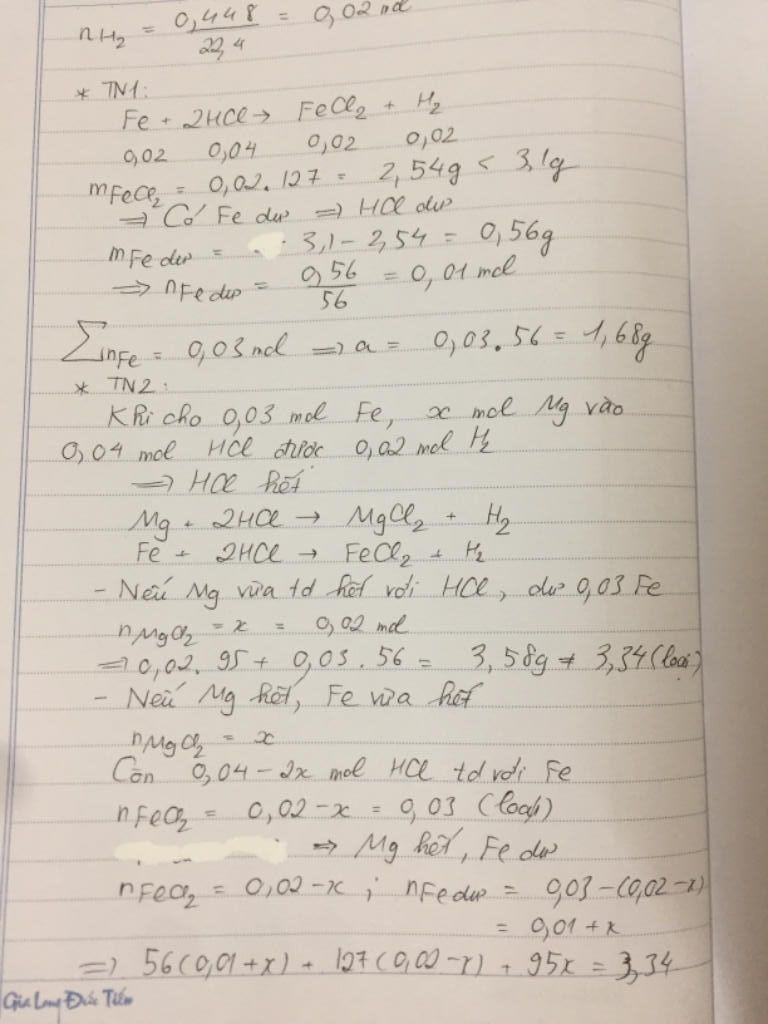 nH₂ = 0,448/22,4 = 0,02 mol
* TN1:
Fe + 2HCl → FeCl₂ + H₂
0,02 0,04 0,02 0,02
mFeCl₂ = 0,02.127 = 2,54g < 3,1g
⟹ Có Fe dư ⟹ HCl dư
mFe dư = 3,1 - 2,54 = 0,56g
⟹ nFe dư = 0,56/56 = 0,01 mol
∑nFe = 0,03 mol ⟹ a = 0,03.56 = 1,68g
* TN2:
Khi cho 0,03 mol Fe, x mol Mg vào
0,04 mol HCl được 0,02 mol H₂
⟹ HCl hết
Mg + 2HCl → MgCl₂ + H₂
Fe + 2HCl → FeCl₂ + H₂
- Nếu Mg vừa td hết với HCl, dư 0,03 Fe
nMgCl₂ = x = 0,02 mol
⟹ 0,02.95 + 0,03.56 = 3,58g ≠ 3,34 (loại)
- Nếu Mg hết, Fe vừa hết
nMgCl₂ = x
Còn 0,04 - 2x mol HCl td với Fe
nFeCl₂ = 0,02 - x = 0,03 (loại)
⟹ Mg hết, Fe dư
nFeCl₂ = 0,02 - x ; nFe dư = 0,03 - (0,02 - x)
= 0,01 + x
⟹ 56(0,01 + x) + 127(0,02 - x) + 95x = 3,34
Gia Long Đức Tiến